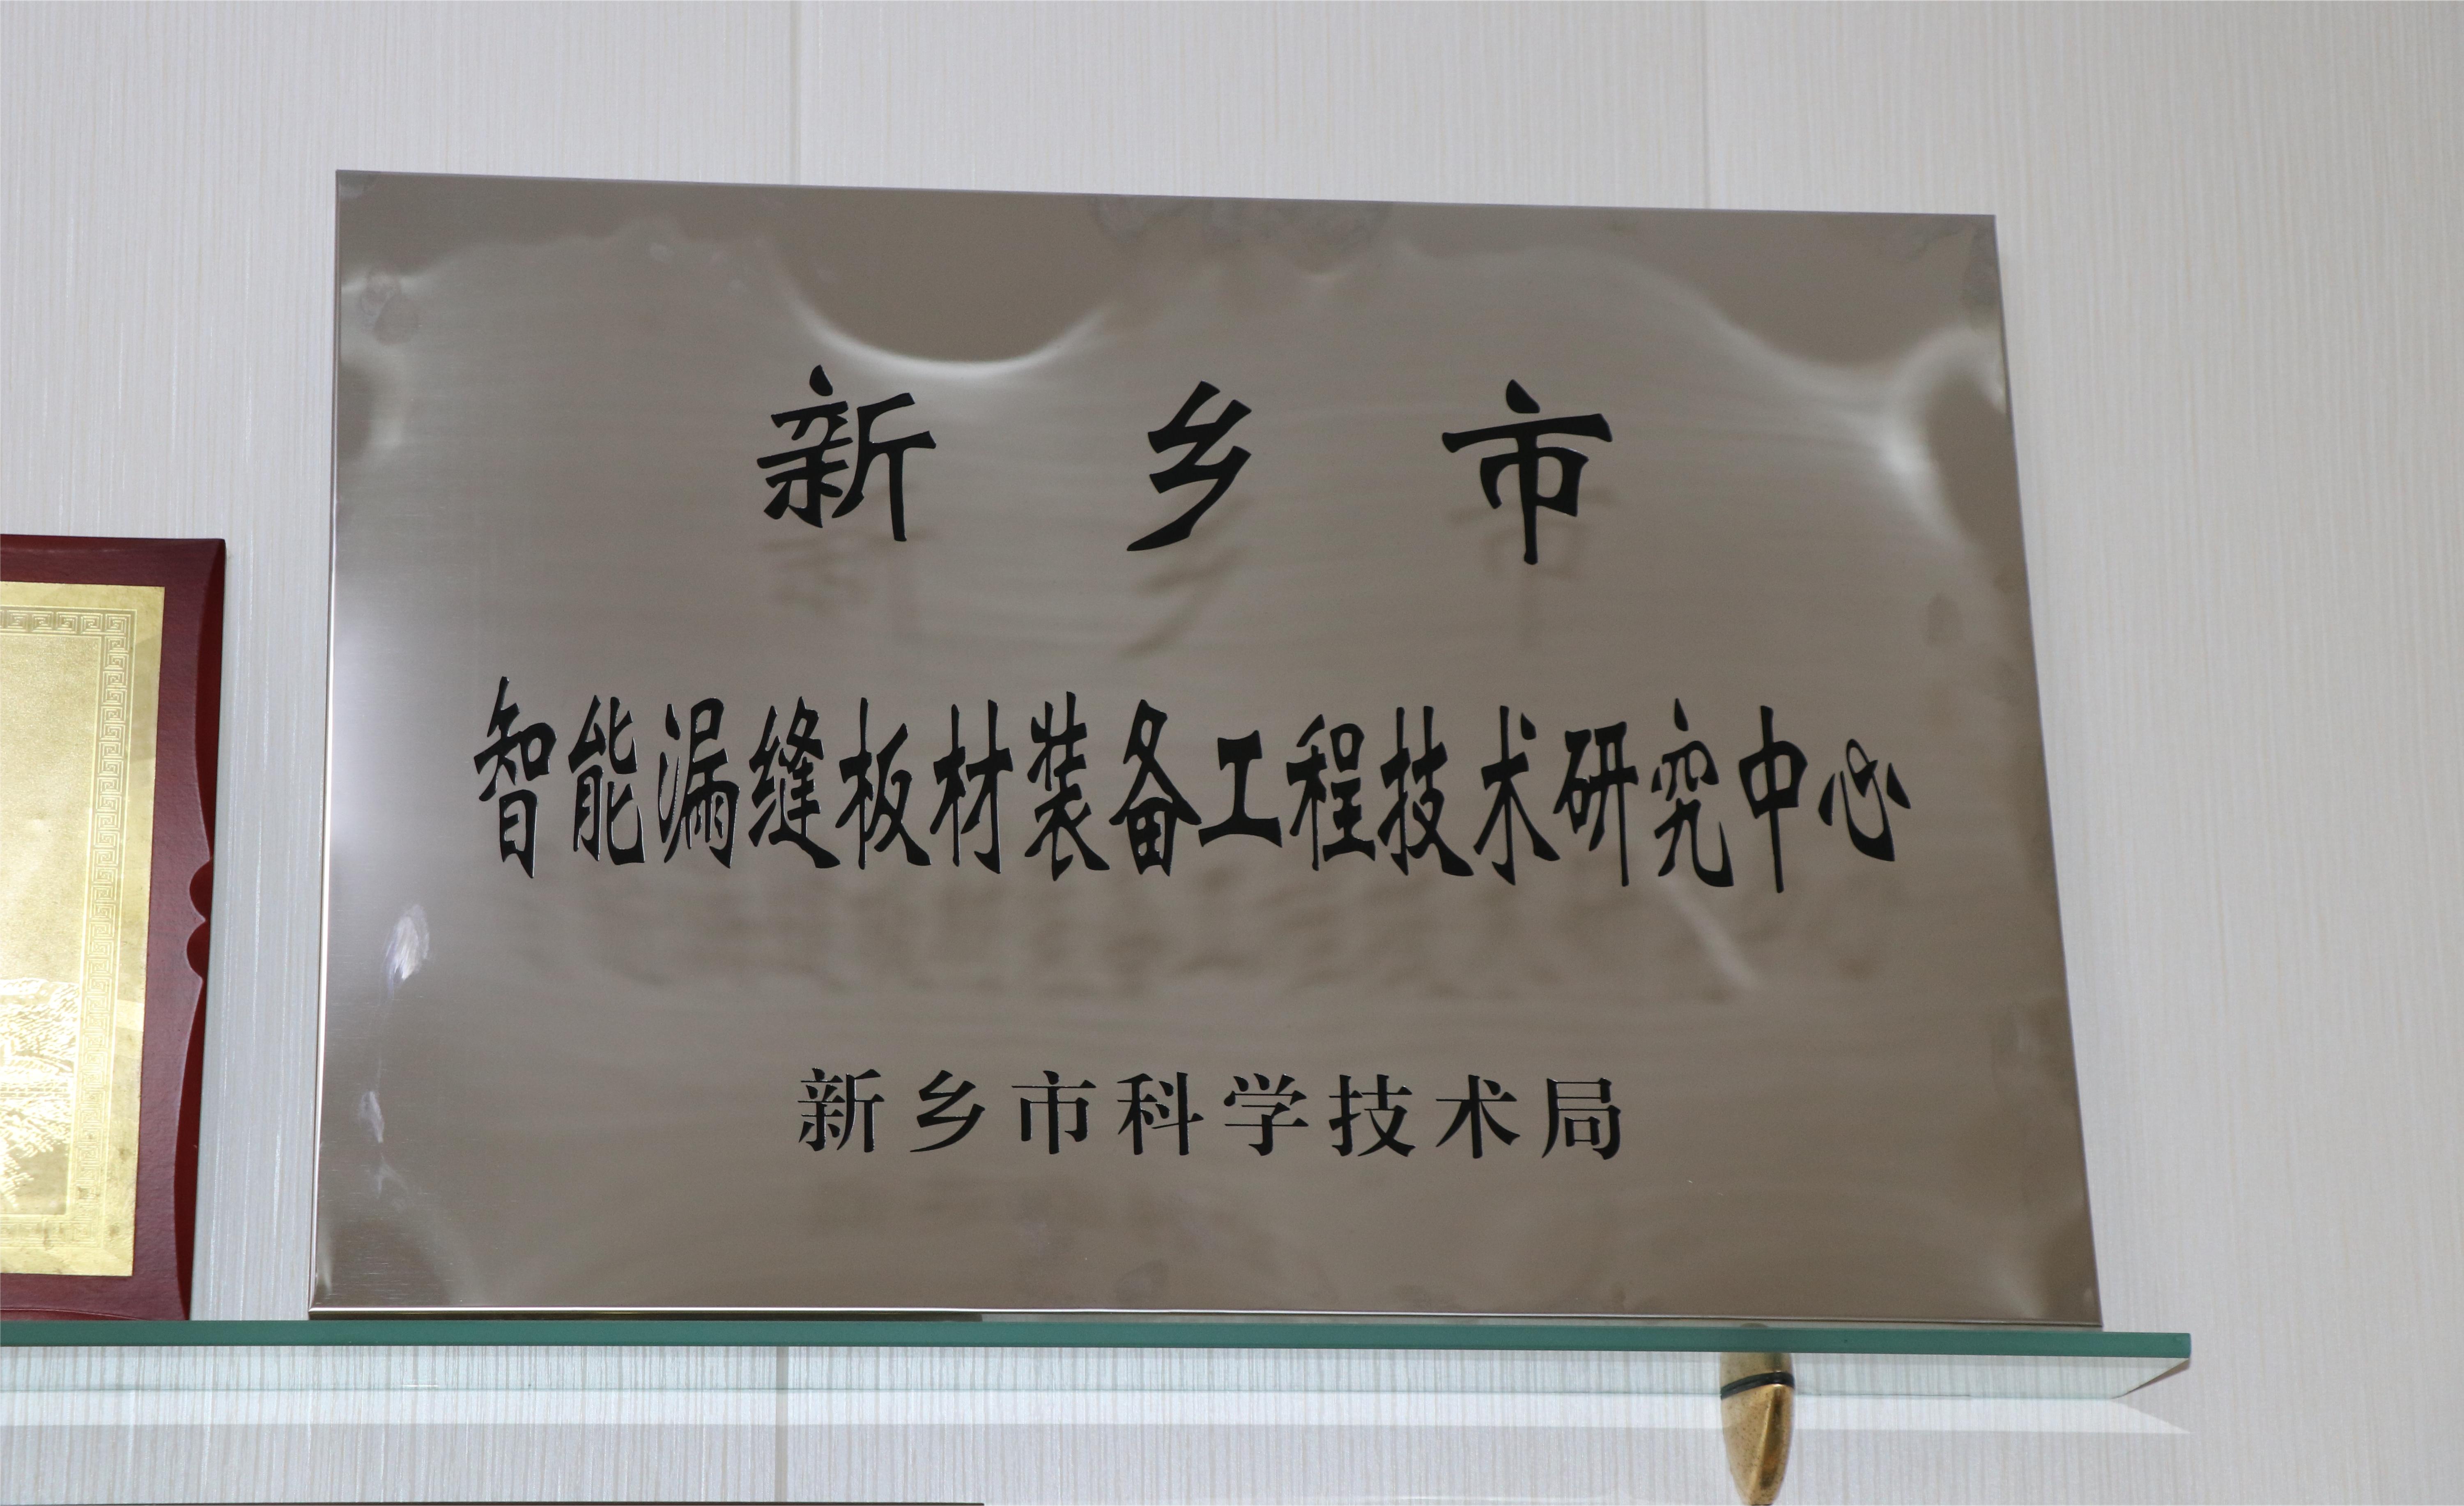 新乡市
智能漏缝板材装备工程技术研究中心
新乡市科学技术局